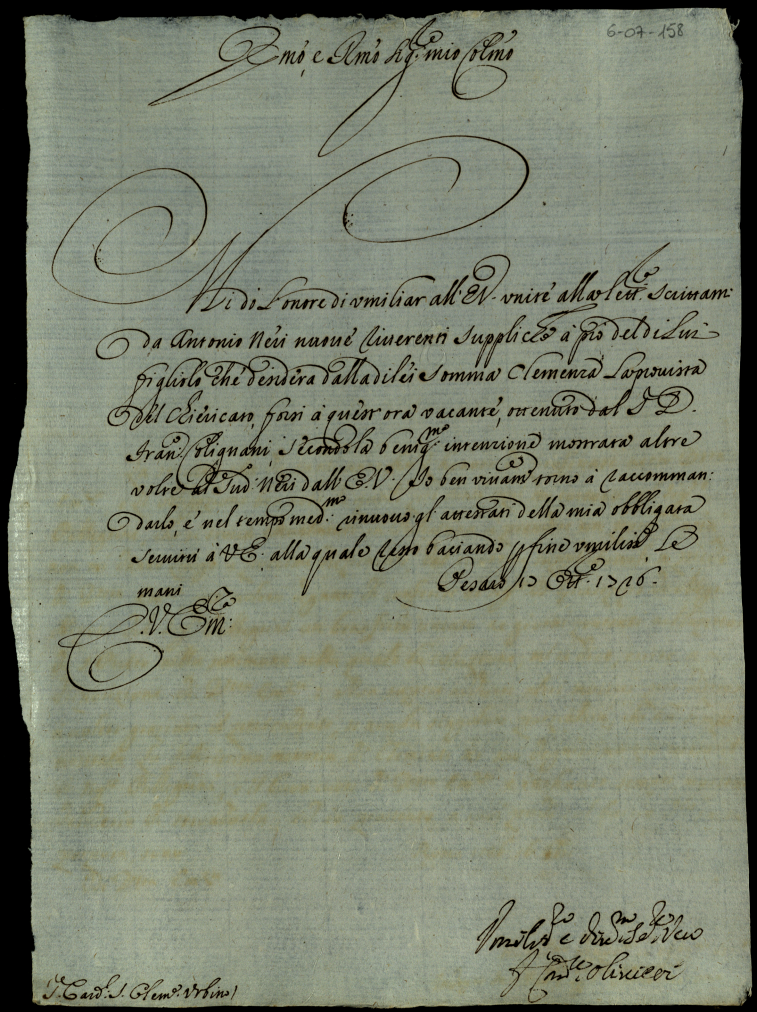 6-07-158
Emo, e Rmo Sigre. mio Colmo
Mi do l'onore di umiliar all'E.V. unite alla lettra. scrittami
da Antonio Neri nuove riverenti suppliche à prò del di Lui
figliolo che desidera dalla di lei somma Clemenza la provista
del Chiericato, forsi à quest'ora vacante, ottenuto dal S. D.
Fran.co Colignani, secondo la benig.ma intenzione mostrata altre
volte al Sud.o Neri dall'E.V. Io ben vivamte. torno à raccoman:
darlo, e nel tempo med.mo rinuovo gl'attestati della mia obbligata
servitù à V.E: alla quale resto baciando p fine umilisse. Le
mani Pesaro 13 Ott.e 1726.
D.V. Em:za
Umiliss.o e Divotiss.mo Servo
Olivieri
S. Card. S. Cleme. Urbino)